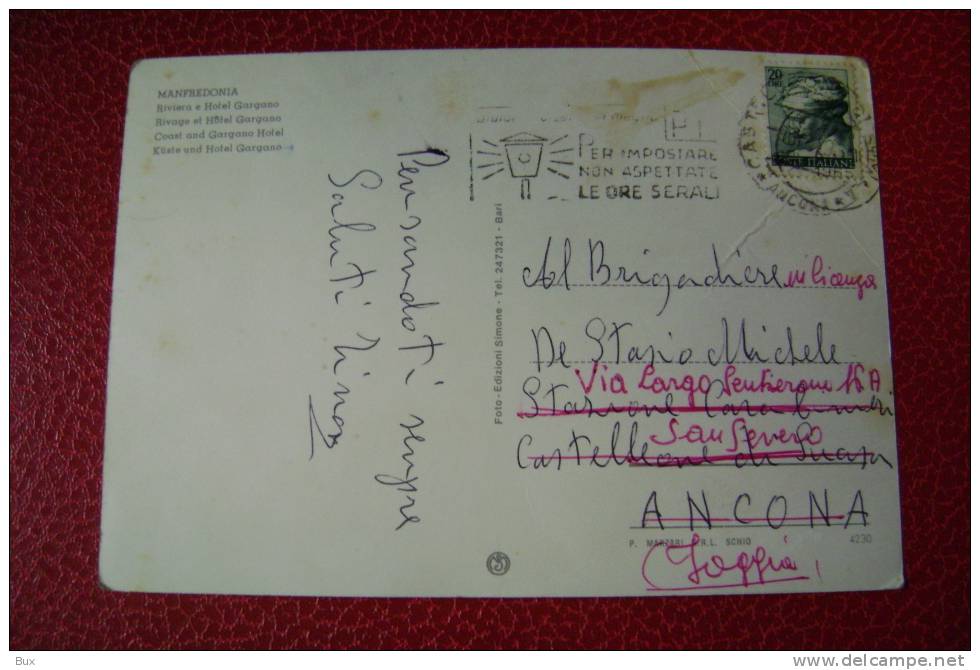 MANFREDONIA
Riviera e Hotel Gargano
Rivage et Hôtel Gargano
Coast and Gargano Hotel
Küste und Hotel Gargano
Pensandoti sempre
Saluti
Foto - Edizioni Simone - Tel. 247321 - Bari
PER IMPOSTARE
NON ASPETTATE
LE ORE SERALI
20
POSTE ITALIANE
ANCONA
Al Brigadiere in licenza
De Stasio Michele
Via Largo 16 A
Stazione Carabinieri
San Severo
Castelleone di Suasa
ANCONA
P. MARZARI S.R.L. SCHIO 4230
(Foggia)
Bux
www.delcampe.net